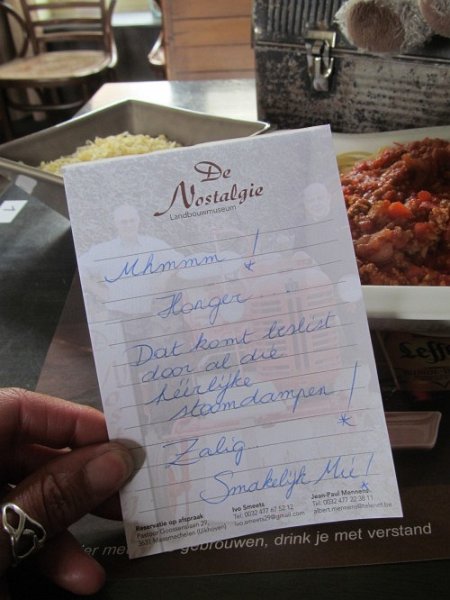 De
Nostalgie
Landbouwmuseum
Mhmmm !
Honger...
Dat komt beslist
door al die
héérlijke
stoomdampen !
Zalig
Smakelijk Mie !
Reservatie op afspraak
Pastoor Goossenslaan 29,
3631 Maasmechelen (Uikhoven)
Ivo Smeets
Tel. 0032 477 67 52 12
ivo.smeets29@gmail.com
Jean-Paul Mennens
Tel. 0032 477 22 38 11
albert.mennens@telenet.be
Leffe
gebrouwen, drink je met verstand